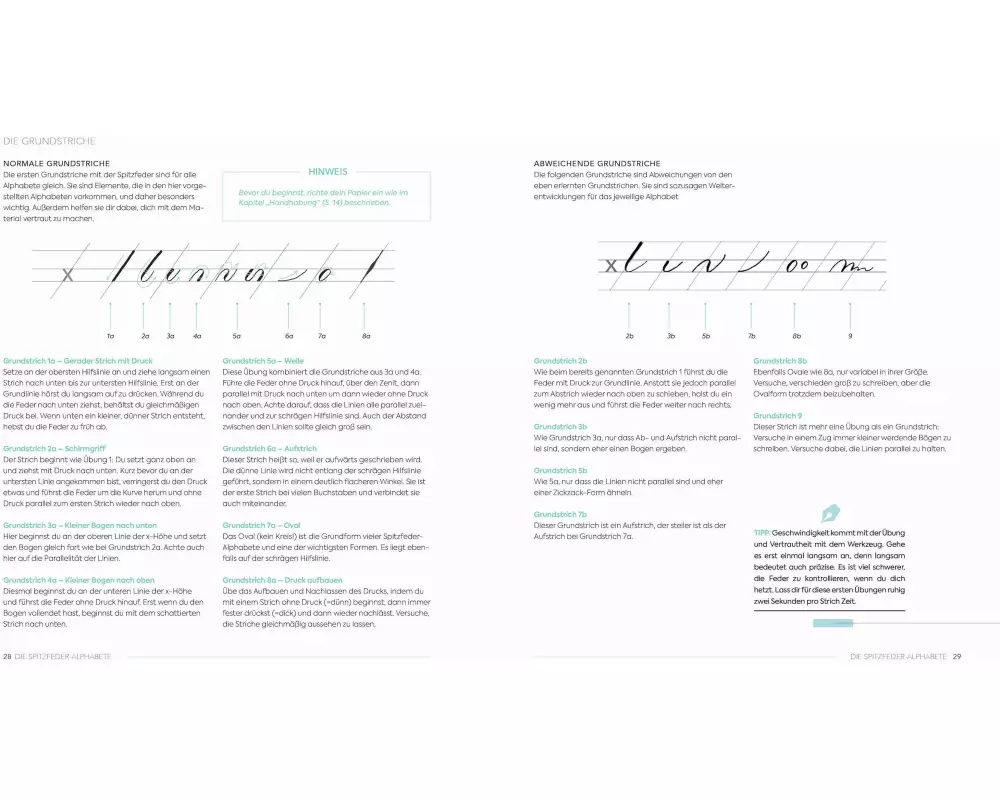 DIE GRUNDSTRICHE
NORMALE GRUNDSTRICHE
Die ersten Grundstriche mit der Spitzfeder sind für alle
Alphabete gleich. Sie sind Elemente, die in den hier vorge-
stellten Alphabeten vorkommen, und daher besonders
wichtig. Außerdem helfen sie dir dabei, dich mit dem Ma-
terial vertraut zu machen.
HINWEIS
Bevor du beginnst, richte dein Papier ein wie im
Kapitel „Handhabung" (S. 14) beschrieben.
x
1a 2a 3a 4a 5a 6a 7a 8a
Grundstrich 1a – Gerader Strich mit Druck
Setze an der obersten Hilfslinie an und ziehe langsam einen
Strich nach unten bis zur untersten Hilfslinie. Erst an der
Grundlinie hörst du langsam auf zu drücken. Während du
die Feder nach unten ziehst, behältst du gleichmäßigen
Druck bei. Wenn unten ein kleiner, dünner Strich entsteht,
hebst du die Feder zu früh ab.
Grundstrich 2a – Schirmgriff
Der Strich beginnt wie Übung 1: Du setzt ganz oben an
und ziehst mit Druck nach unten. Kurz bevor du an der
untersten Linie angekommen bist, verringerst du den Druck
etwas und führst die Feder um die Kurve herum und ohne
Druck parallel zum ersten Strich wieder nach oben.
Grundstrich 3a – Kleiner Bogen nach unten
Hier beginnst du an der oberen Linie der x-Höhe und setzt
den Bogen gleich fort wie bei Grundstrich 2a. Achte auch
hier auf die Parallelität der Linien.
Grundstrich 4a – Kleiner Bogen nach oben
Diesmal beginnst du an der unteren Linie der x-Höhe
und führst die Feder ohne Druck hinauf. Erst wenn du den
Bogen vollendet hast, beginnst du mit dem schattierten
Strich nach unten.
Grundstrich 5a – Welle
Diese Übung kombiniert die Grundstriche aus 3a und 4a.
Führe die Feder ohne Druck hinauf, über den Zenit, dann
parallel mit Druck nach unten um dann wieder ohne Druck
nach oben. Achte darauf, dass die Linien alle parallel zuei-
nander und zur schrägen Hilfslinie sind. Auch der Abstand
zwischen den Linien sollte gleich groß sein.
Grundstrich 6a – Aufstrich
Dieser Strich heißt so, weil er aufwärts geschrieben wird.
Die dünne Linie wird nicht entlang der schrägen Hilfslinie
geführt, sondern in einem deutlich flacheren Winkel. Sie ist
der erste Strich bei vielen Buchstaben und verbindet sie
auch miteinander.
Grundstrich 7a – Oval
Das Oval (kein Kreis!) ist die Grundform vieler Spitzfeder-
Alphabete und eine der wichtigsten Formen. Es liegt eben-
falls auf der schrägen Hilfslinie.
Grundstrich 8a – Druck aufbauen
Übe das Aufbauen und Nachlassen des Drucks, indem du
mit einem Strich ohne Druck (=dünn) beginnst, dann immer
fester drückst (=dick) und dann wieder nachlässt. Versuche,
die Striche gleichmäßig aussehen zu lassen.
28 DIE SPITZFEDER-ALPHABETE
ABWEICHENDE GRUNDSTRICHE
Die folgenden Grundstriche sind Abweichungen von den
eben erlernten Grundstrichen. Sie sind sozusagen Weiter-
entwicklungen für das jeweilige Alphabet
x
2b 3b 5b 7b 8b 9
Grundstrich 2b
Wie beim bereits genannten Grundstrich 1 führst du die
Feder mit Druck zur Grundlinie. Anstatt sie jedoch parallel
zum Abstrich wieder nach oben zu schieben, holst du ein
wenig mehr aus und führst die Feder weiter nach rechts.
Grundstrich 3b
Wie Grundstrich 3a, nur dass Ab- und Aufstrich nicht paral-
lel sind, sondern eher einen Bogen ergeben.
Grundstrich 5b
Wie 5a, nur dass die Linien nicht parallel sind und eher
einer Zickzack-Form ähneln.
Grundstrich 7b
Dieser Grundstrich ist ein Aufstrich, der steiler ist als der
Aufstrich bei Grundstrich 7a.
Grundstrich 8b
Ebenfalls Ovale wie 8a, nur variabel in ihrer Größe.
Versuche, verschieden groß zu schreiben, aber die
Ovalform trotzdem beizubehalten.
Grundstrich 9
Dieser Strich ist mehr eine Übung als ein Grundstrich:
Versuche in einem Zug immer kleiner werdende Bögen zu
schreiben. Versuche dabei, die Linien parallel zu halten.
TIPP: Geschwindigkeit kommt mit der Übung
und Vertrautheit mit dem Werkzeug. Gehe
es erst einmal langsam an, denn langsam
bedeutet auch präzise. Es ist viel schwerer,
die Feder zu kontrollieren, wenn du dich
hetzt. Lass dir für diese ersten Übungen ruhig
zwei Sekunden pro Strich Zeit.
DIE SPITZFEDER-ALPHABETE 29